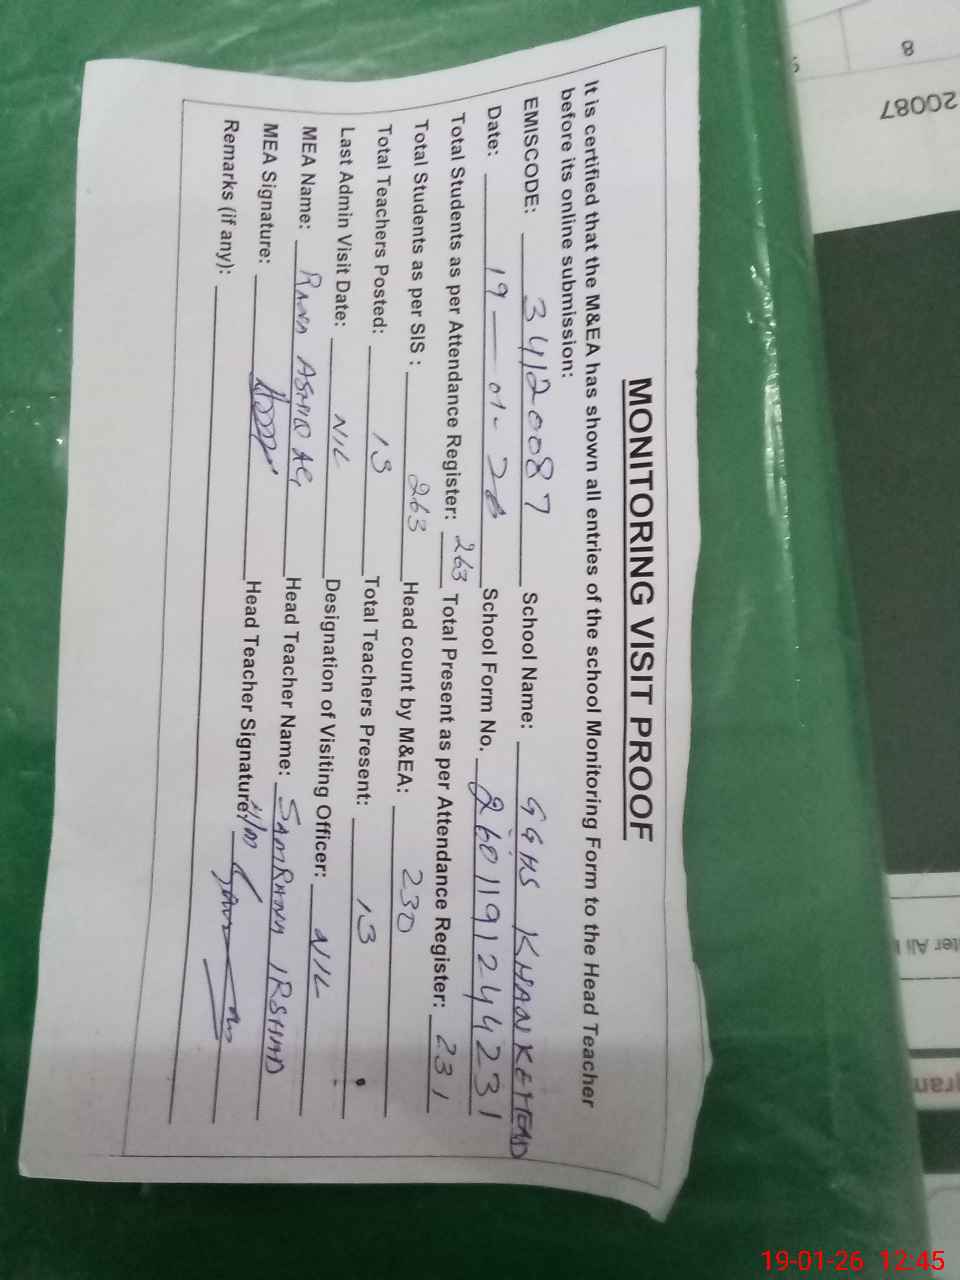 MONITORING VISIT PROOF
It is certified that the M&EA has shown all entries of the school Monitoring Form to the Head Teacher
before its online submission:
EMISCODE: 34120087 School Name: GGHS KHANKEHEAD
Date: 19-01-26 School Form No. 2601191244231
Total Students as per Attendance Register: 263 Total Present as per Attendance Register: 231
Total Students as per SIS : 263 Head count by M&EA: 230
Total Teachers Posted: 13 Total Teachers Present: 13
Last Admin Visit Date: NIL Designation of Visiting Officer: NIL
MEA Name: RANA Head Teacher Name: SAMRANA IRSHAD
MEA Signature: Head Teacher Signature:
Remarks (if any):
8
20087
ter Ali
gran
19-01-26 12:45